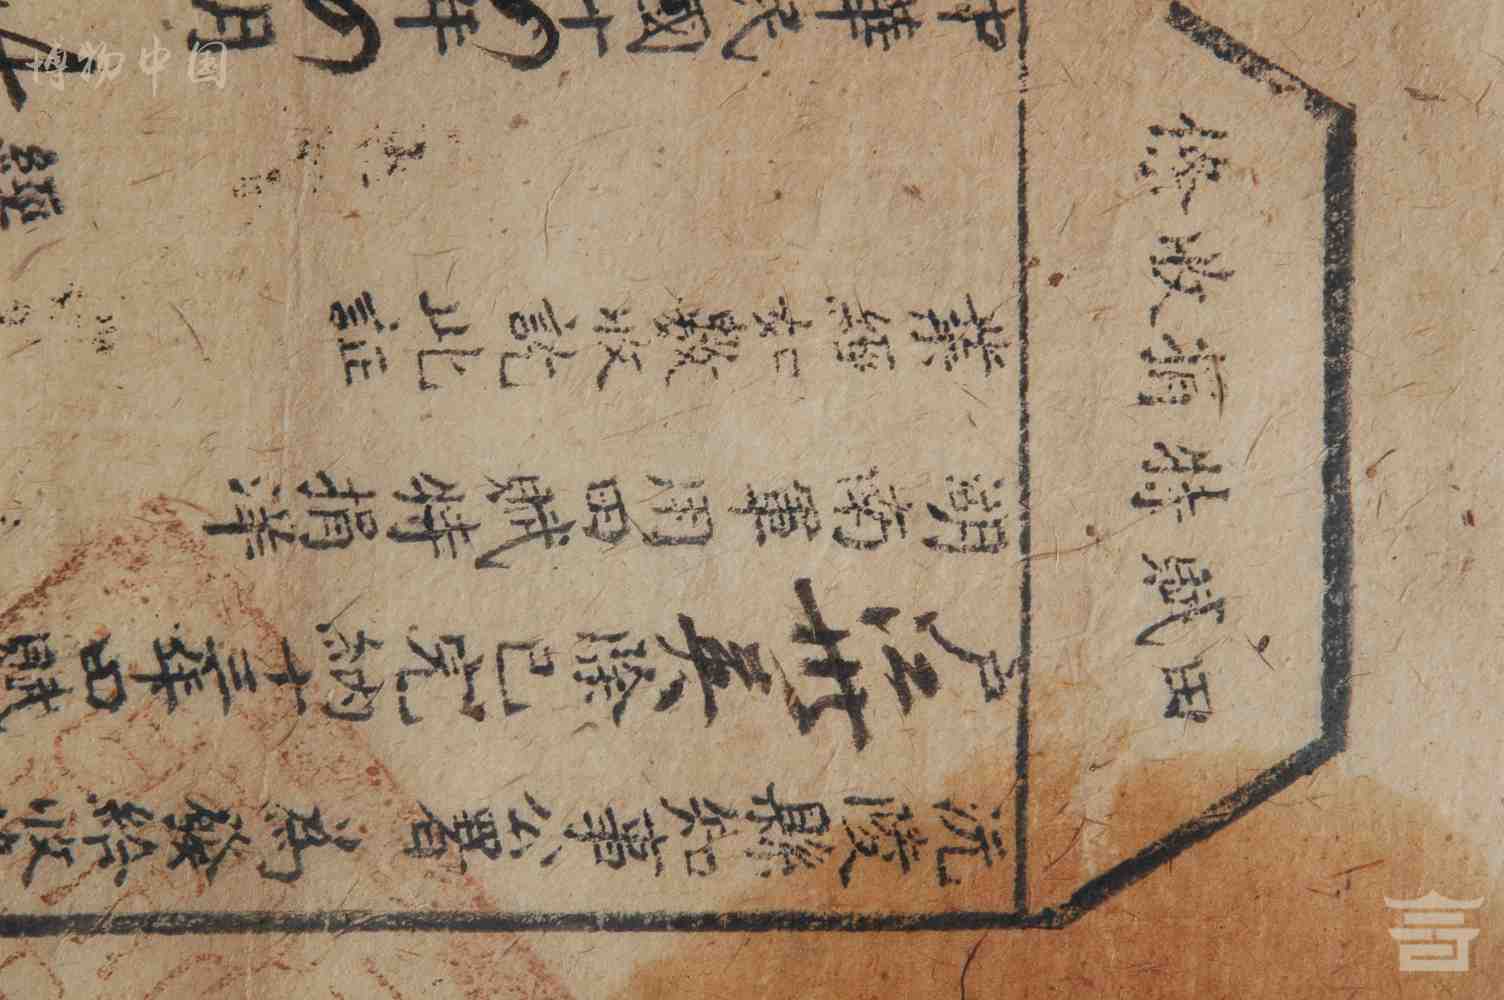 田賦特捐收條
沅陵縣知事公署為發給收
户 除已完納十三年田賦
湖南軍用田賦特捐洋
業經如數收訖此証
中華民國十 年 月
經
博物中国